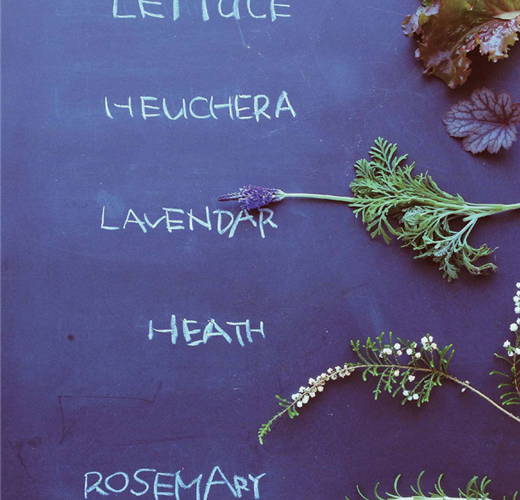 LETTUCE
HEUCHERA
LAVENDAR
HEATH
ROSEMARY